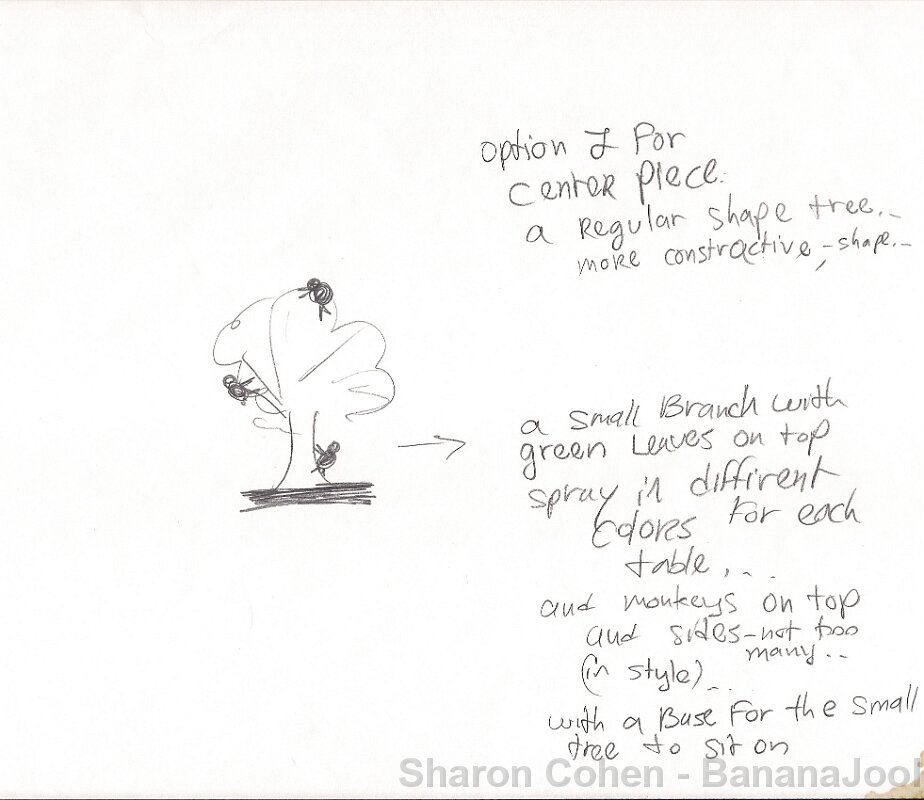 option I For
center piece.
a Regular shape tree..
more constractive, -shape..
a small Branch with
green Leaves on top
spray in diffirent
Colores For each
table, ..
and monkeys on top
and sides-not too
many..
(in style)..
with a Base For the small
tree to sit on
Sharon Cohen - BananaJooi